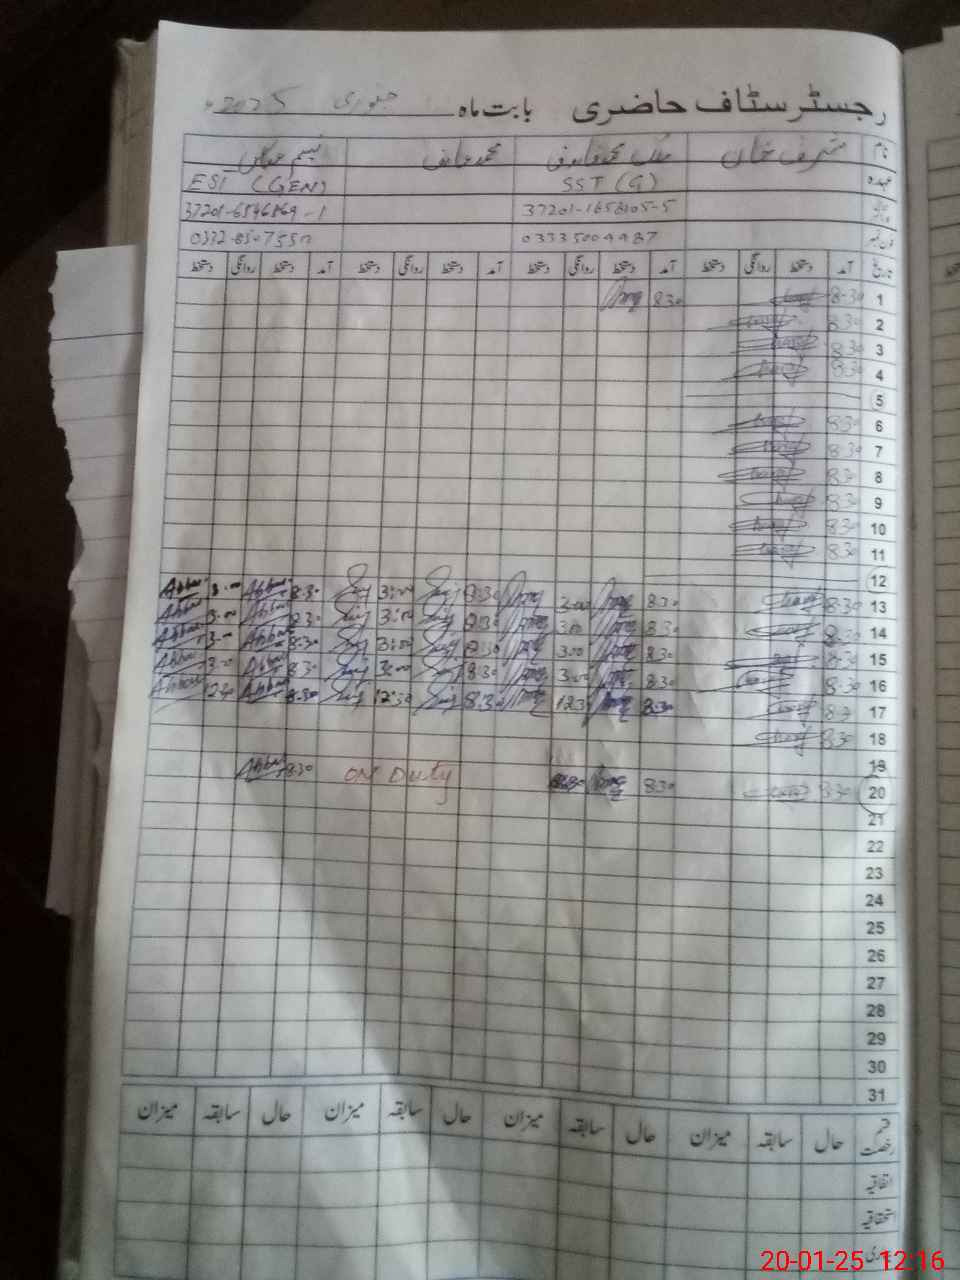 رجسٹر سٹاف حاضری بابت ماہ جنوری 2025ء
نام مشرف خان ملک محمد فاروق محمد عارف نسیم عباس
عہدہ SST (G) ESI (GEN)
37201-1658105-5 37201-6546869-1
فون نمبر 03335004487
تاریخ آمد دستخط روانگی دستخط آمد دستخط روانگی دستخط آمد دستخط روانگی دستخط آمد دستخط روانگی دستخط
1 8-30 8.30
2 8.30
3 8.30
4 8.30
5
6 8.30
7 8.30
8 8.30
9 8.30
10 8.30
11 8.30
12
13 8.30 8.30 3.00 8.30 3:00 8.30 3.00
14 8.30 8.30 3.00 8.30 3:00 8.30 3.00
15 8.30 8.30 3.00 8.30 3:00 8.30 3.00
16 8.30 8.30 3.00 8.30 3:00 8.30 3.00
17 8.30 8.30 12.30 8.30 12:30 8.30 12.30
18 8.30
19
20 8.30 8.30 ON Duty 8.30
21
22
23
24
25
26
27
28
29
30
31
قسم رخصت حال سابقہ میزان حال سابقہ میزان حال سابقہ میزان حال سابقہ میزان
اتفاقیہ
استحقاقیہ
20-01-25 12:16